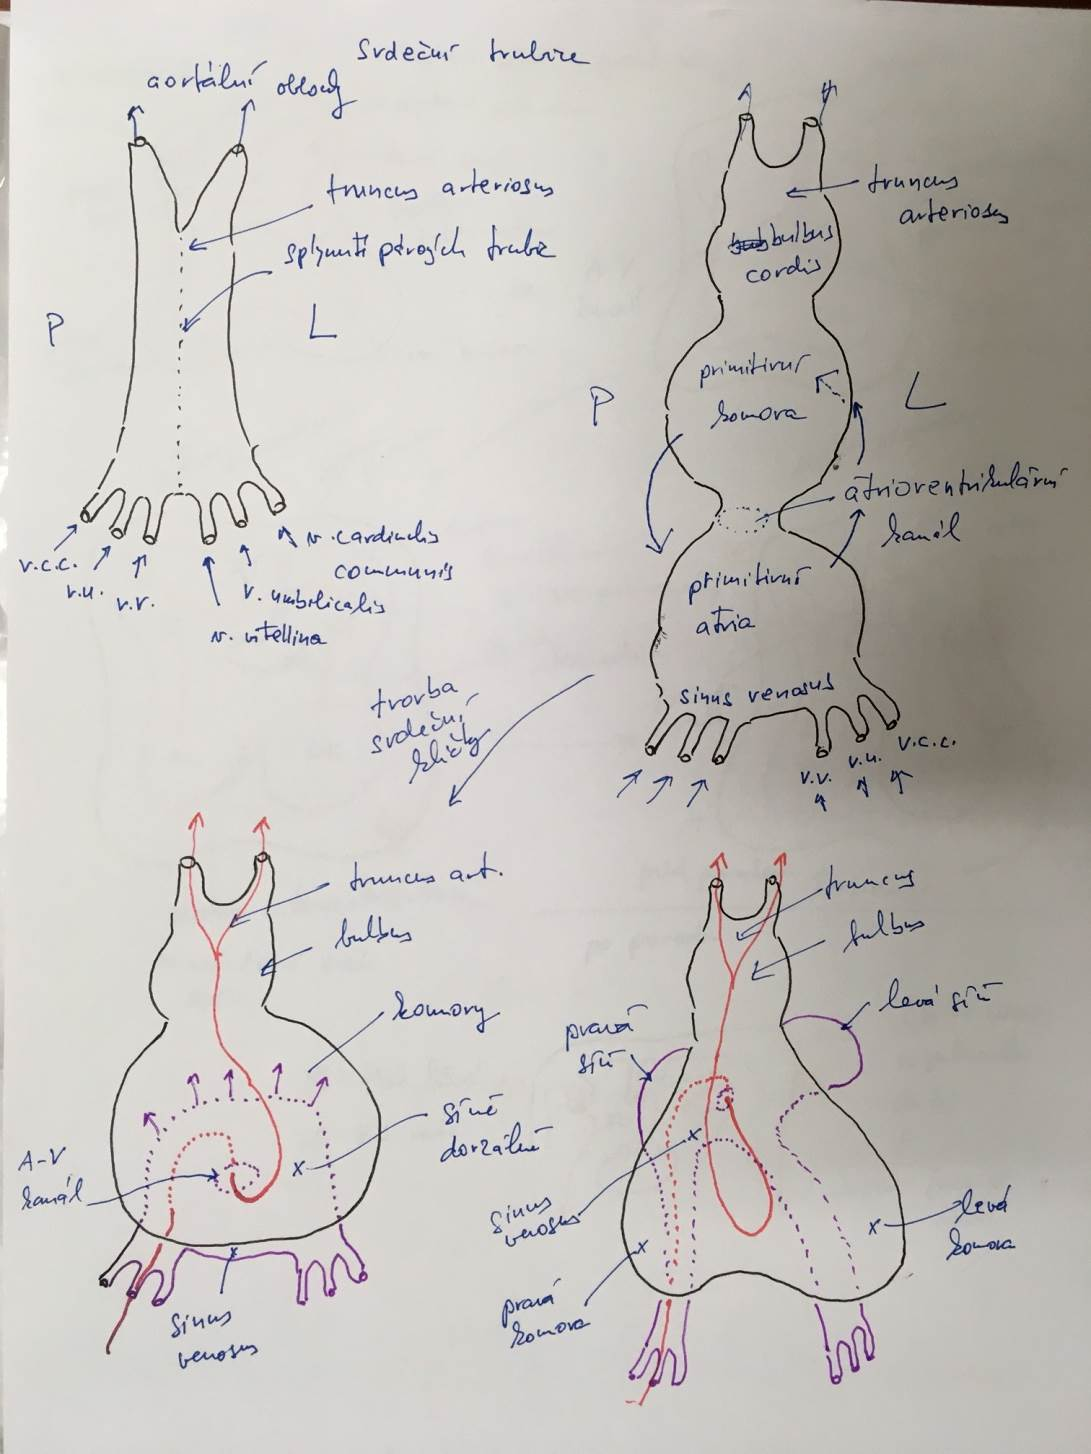 Srdeční trubice
aortální oblouky
truncus arteriosus
splynutí párových trubic
P
L
v.c.c.
v.u.
v.v.
v. cardinalis
communis
v. umbilicalis
v. vitellina
truncus
arteriosus
bulbus
cordis
primitivní
komora
P
L
atrioventrikulární
kanál
primitivní
atria
sinus venosus
v.v.
v.u.
v.c.c.
tvorba
srdeční
kličky
truncus art.
bulbus
komory
síně
dorzálně
A-V
kanál
x
x
sinus
venosus
truncus
bulbus
levá síň
pravá
síň
x
sinus
venosus
x
pravá
komora
x
levá
komora